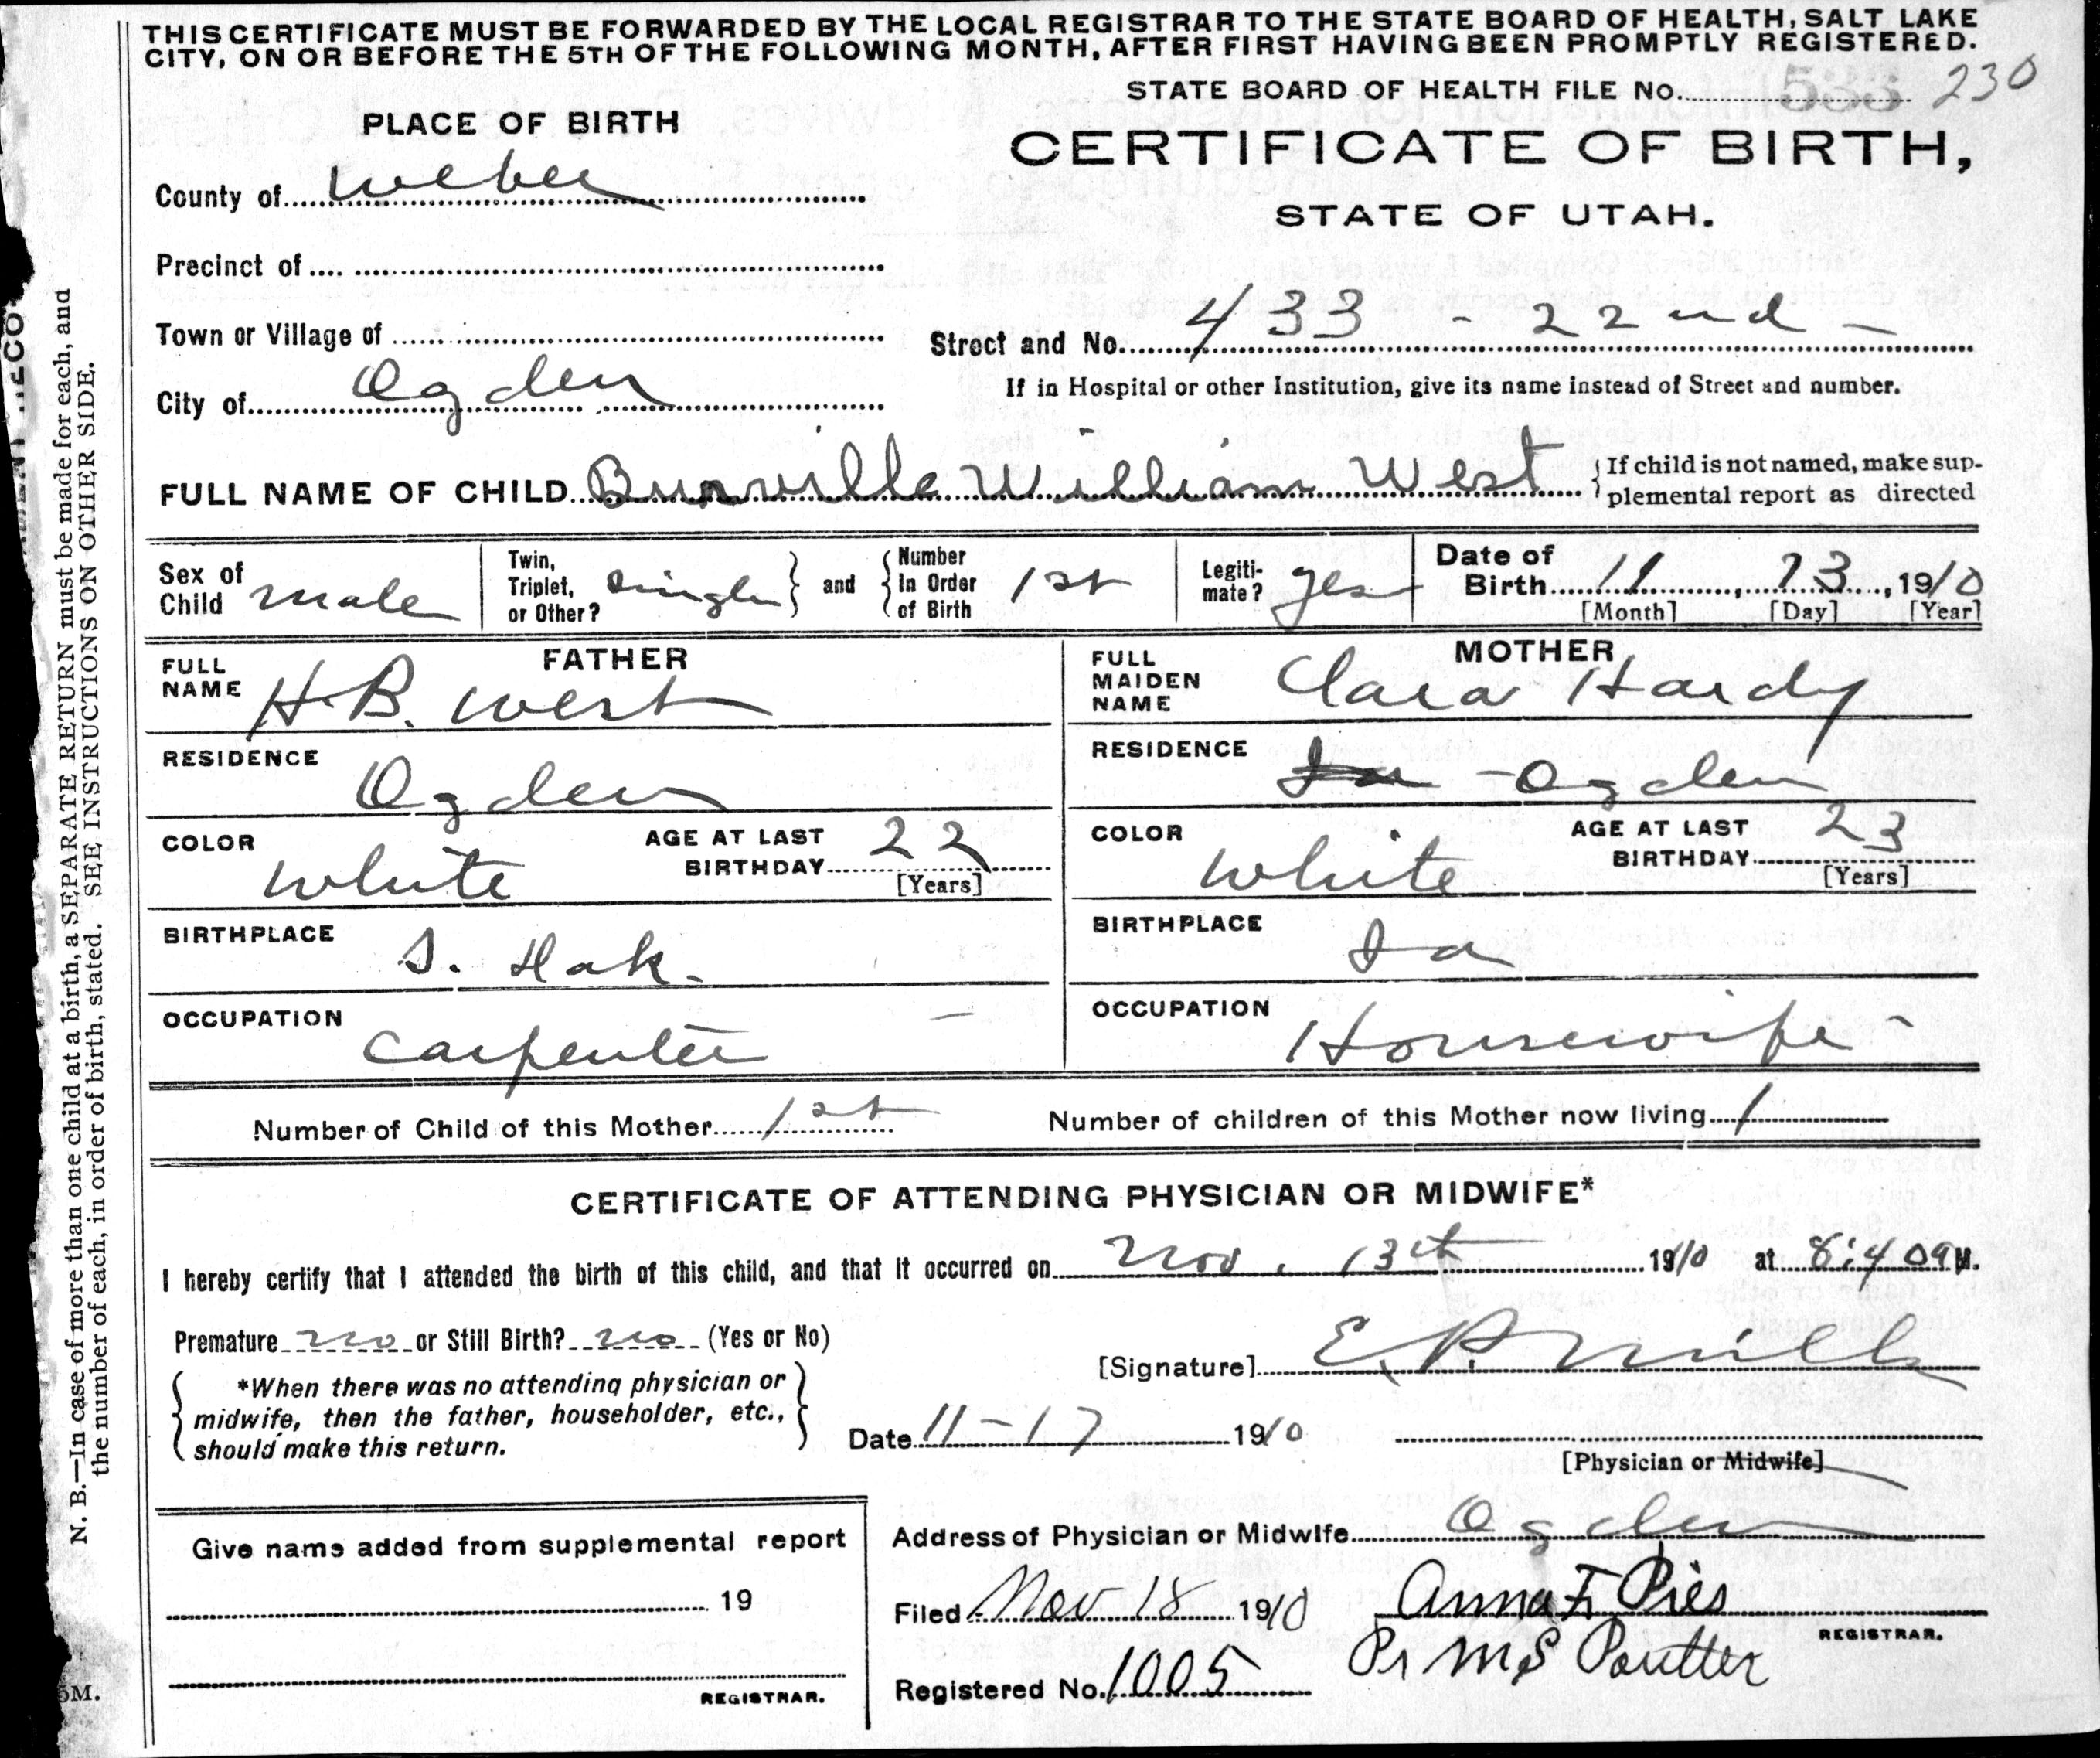 THIS CERTIFICATE MUST BE FORWARDED BY THE LOCAL REGISTRAR TO THE STATE BOARD OF HEALTH, SALT LAKE
CITY, ON OR BEFORE THE 5TH OF THE FOLLOWING MONTH, AFTER FIRST HAVING BEEN PROMPTLY REGISTERED.
STATE BOARD OF HEALTH FILE No. 230
PLACE OF BIRTH
CERTIFICATE OF BIRTH,
STATE OF UTAH.
County of Weber
Precinct of
Town or Village of
Street and No. 433 - 22nd -
City of Ogden
If in Hospital or other Institution, give its name instead of Street and number.
FULL NAME OF CHILD William West
If child is not named, make sup-
plemental report as directed
Sex of Child male
Twin, Triplet, or Other? Single and Number In Order of Birth 1st
Legiti-mate? yes
Date of Birth 11, 13, 1910
[Month] [Day] [Year]
FATHER
FULL NAME H.B. West
RESIDENCE Ogden
COLOR White AGE AT LAST BIRTHDAY 22 [Years]
BIRTHPLACE S. Dak.
OCCUPATION Carpenter
MOTHER
FULL MAIDEN NAME Clara Hardy
RESIDENCE Ia - Ogden
COLOR White AGE AT LAST BIRTHDAY 23 [Years]
BIRTHPLACE Ia
OCCUPATION Housewife
Number of Child of this Mother 1st
Number of children of this Mother now living 1
CERTIFICATE OF ATTENDING PHYSICIAN OR MIDWIFE*
I hereby certify that I attended the birth of this child, and that it occurred on Nov. 13th 1910 at 8:40 a M.
Premature no or Still Birth? no (Yes or No)
[Signature] E. P. Mills
*When there was no attending physician or
midwife, then the father, householder, etc.,
should make this return.
Date 11-17 1910
[Physician or Midwife]
Give name added from supplemental report
19
REGISTRAR.
Address of Physician or Midwife Ogden
Filed Nov 18 1910 Anna F. Pies
REGISTRAR.
Registered No. 1005 Pr M S Poutter
N. B.—In case of more than one child at a birth, a SEPARATE RETURN must be made for each, and
the number of each, in order of birth, stated. SEE INSTRUCTIONS ON OTHER SIDE.
5M.